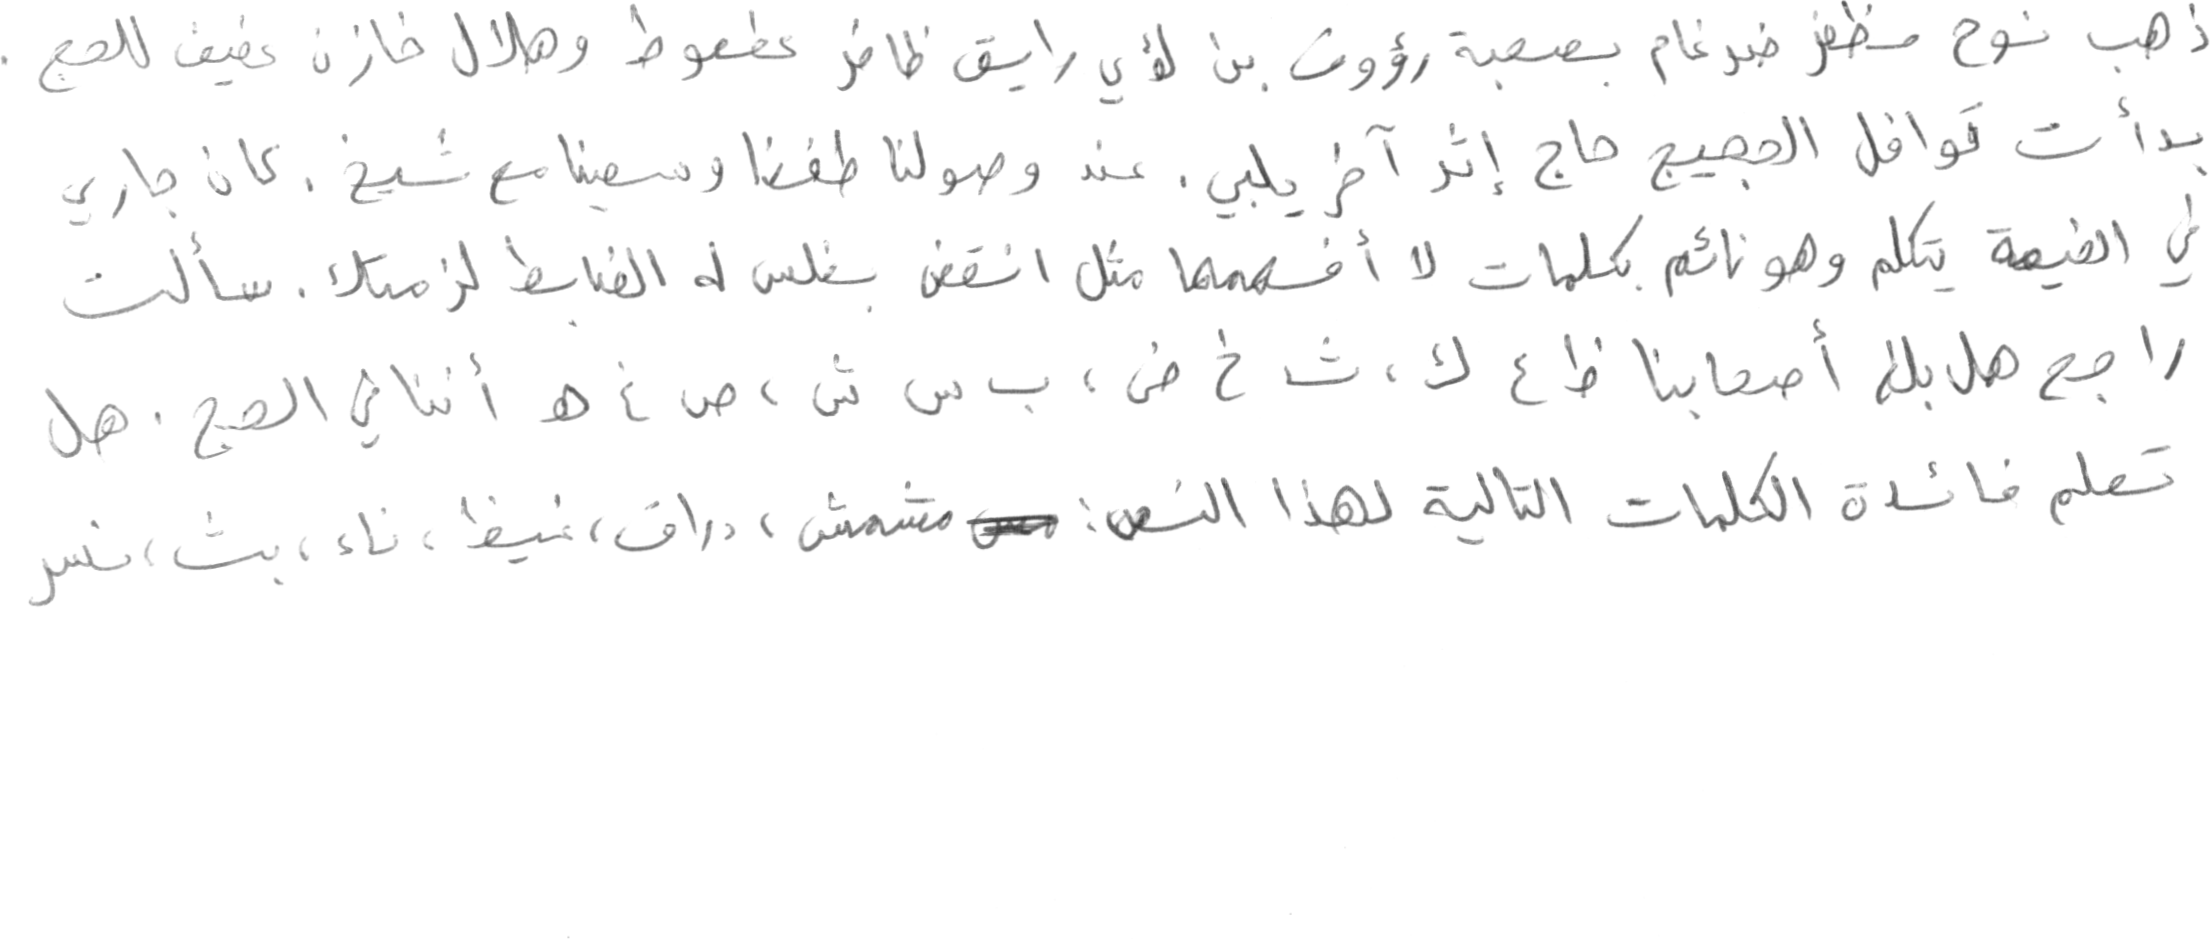 ذهب نوح مظفر ضرغام بصحبة رؤوف بن لؤي رايق ظافر عطعوط وهلال خازن عفيف للحج .
بدأت قوافل الحجيج حاج إثر آخر يلبي . عند وصولنا طفنا وسعينا مع شيخ . كان جاري
في الضيعة يتكلم وهو نائم بكلمات لا أفهمها مثل انقض بغلس له الضابط لزمتك . سألت
راجح هل بلغ أصحابنا ظ ع ك ، ث خ ض ، ب س ش ، ص غ ه أننا في الحج . هل
تعلم فائدة الكلمات التالية لهذا النص : مشمش ، دراق ، غيظ ، ناء ، بث ، نسر